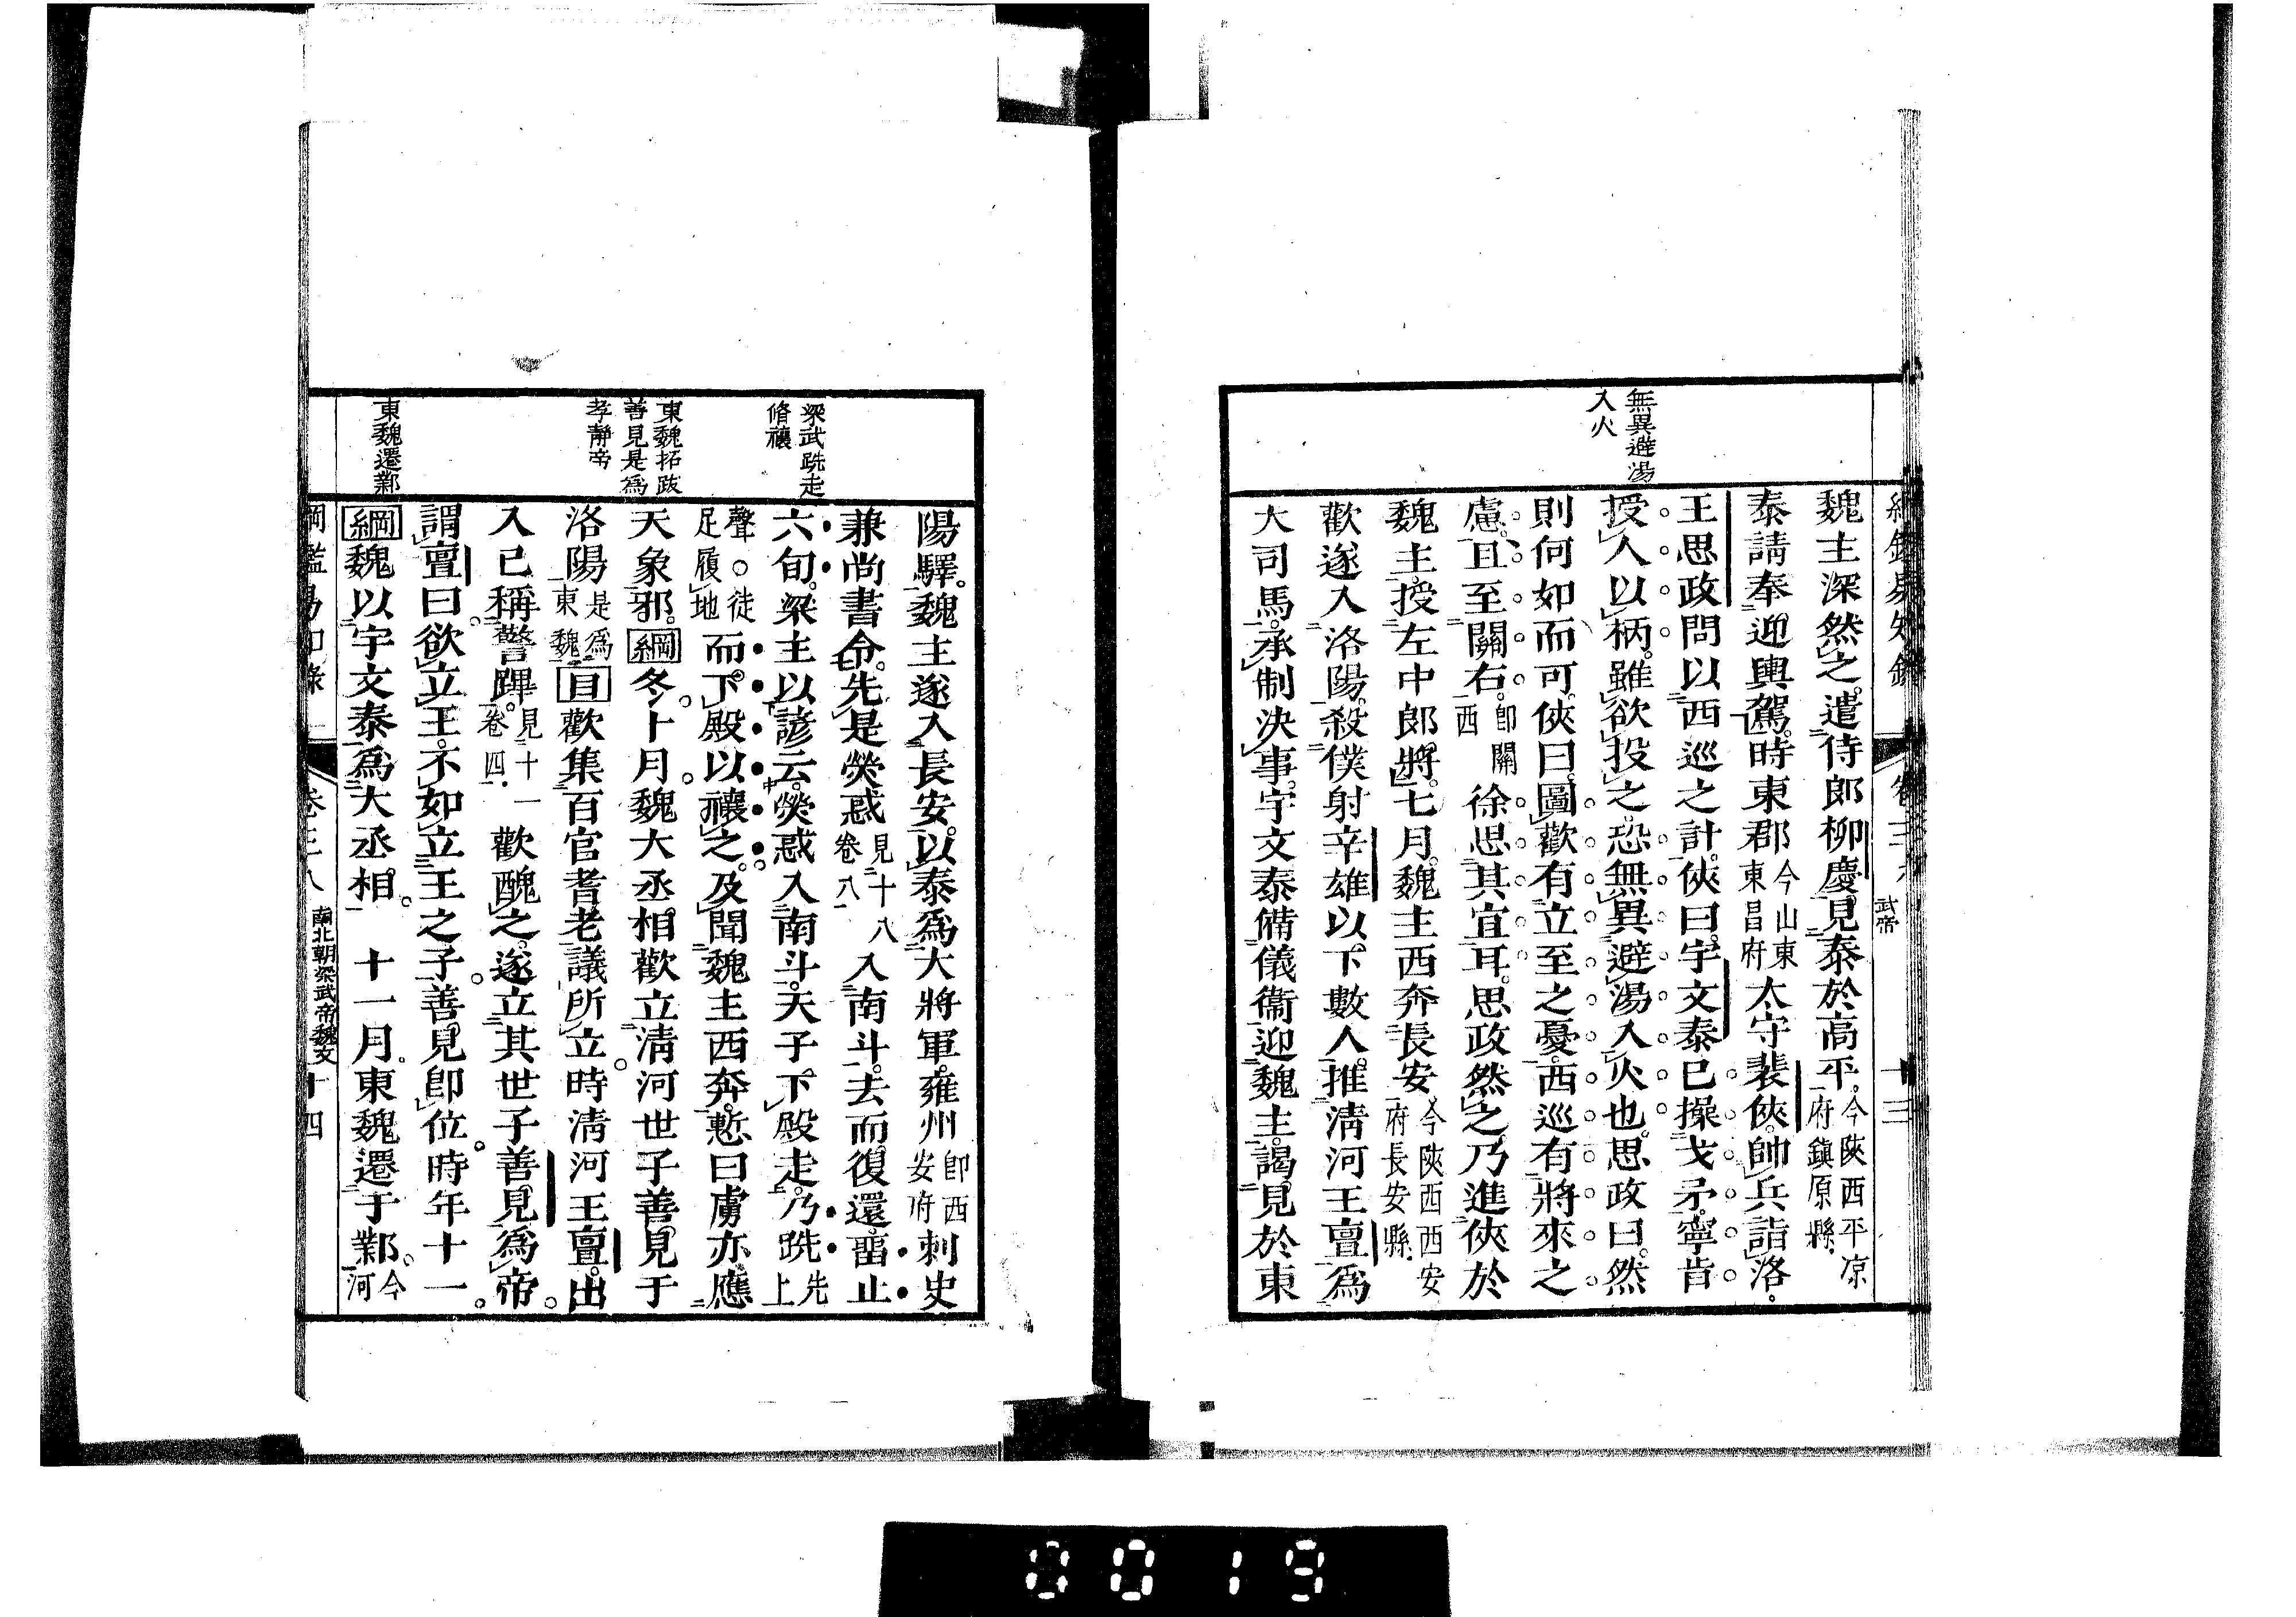 無異避湯
入火
魏主深然之遣侍郎柳慶見泰於高平今陜西平凉府鎮原縣
泰請奉迎輿駕時東郡今山東東昌府太守裴俠帥兵詣洛
王思政問以西巡之計俠曰宇文泰已操戈矛寧肯
授人以柄雖欲投之恐無異避湯入火也思政曰然
則何如而可俠曰圖歡有立至之憂西巡有將來之
慮且至關右卽關西徐思其宜耳思政然之乃進俠於
魏主授左中郎將七月魏主西奔長安今陜西西安府長安縣
歡遂入洛陽殺僕射辛雄以下數人推淸河王亶爲
大司馬承制決事宇文泰備儀衞迎魏主謁見於東
武帝
十三
梁武跣走
脩禳
東魏拓跋
善見是爲
孝靜帝
東魏遷鄴
陽驛魏主遂入長安以泰爲大將軍雍州卽西安府刺史
兼尚書令先是熒惑見十八卷八入南斗去而復還畱止
六旬梁主以諺云熒惑入南斗天子下殿走乃跣先上
聲○徒足履地而下殿以禳之及聞魏主西奔慙曰虜亦應
天象邪綱冬十月魏大丞相歡立淸河世子善見于
洛陽是爲東魏目歡集百官耆老議所立時淸河王亶出
入已稱警蹕見十一卷四歡醜之遂立其世子善見爲帝
謂亶曰欲立王不如立王之子善見卽位時年十一
綱魏以宇文泰爲大丞相 十一月東魏遷于鄴今河
綱鑑易知錄 卷三八 南北朝梁武帝魏文 十四